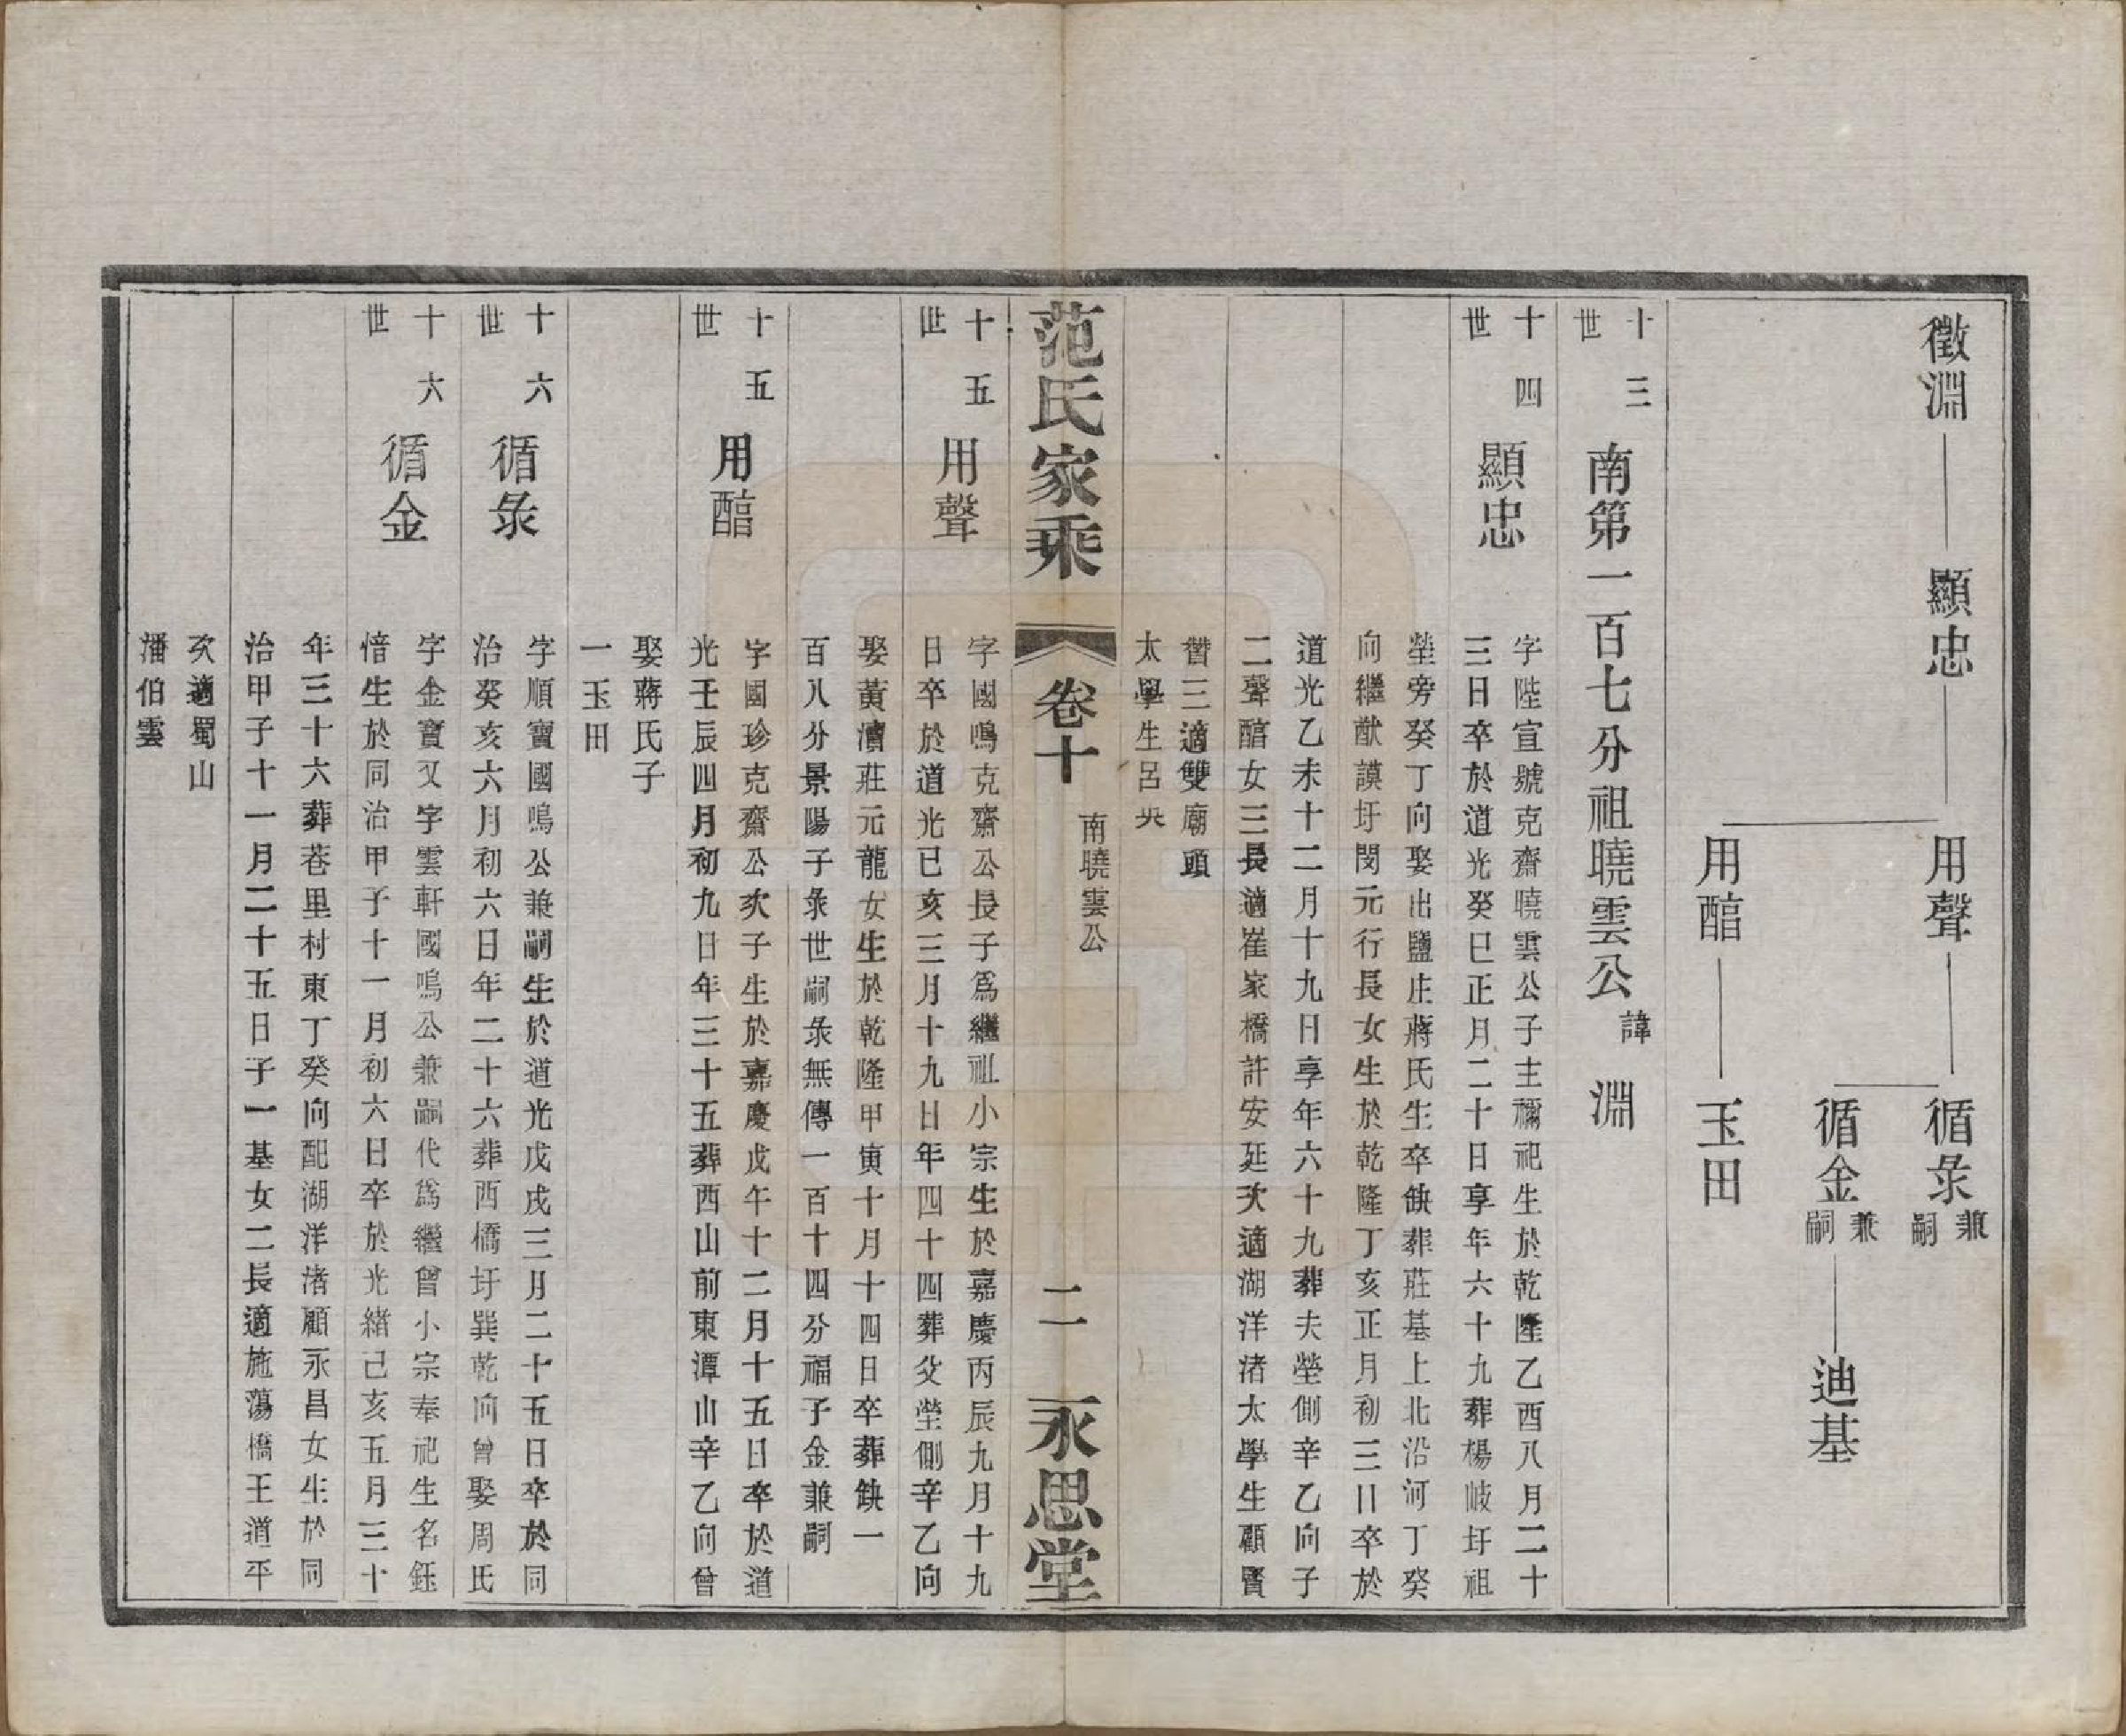 徵淵 顯忠 用聲 循彔 兼嗣
循金 兼嗣 迪基
用䣽 玉田
十三世 南第一百七分祖曉雲公 諱 淵
十四世 顯忠
字陛宣號克齋曉雲公子主禰祀生於乾隆乙酉八月二十
三日卒於道光癸巳正月二十日享年六十九葬楊岐圩祖
塋旁癸丁向娶出鹽庄蔣氏生卒缺葬莊基上北沿河丁癸
向繼猷謨圩閔元行長女生於乾隆丁亥正月初三日卒於
道光乙未十二月十九日享年六十九葬夫塋側辛乙向子
二聲䣽女三長適崔家橋許安廷次適湖洋渚太學生顧賢
榰三適雙廟頭
太學生呂央
范氏家乘 卷十 南曉雲公 二 永思堂
十五世 用聲
字國鳴克齋公長子為繼祖小宗生於嘉慶丙辰九月十九
日卒於道光己亥三月十九日年四十四葬父塋側辛乙向
娶黃瀆莊元龍女生於乾隆甲寅十月十四日卒葬缺一
百八分景陽子彔世嗣彔無傳一百十四分福子金兼嗣
十五世 用䣽
字國珍克齋公次子生於嘉慶戊午十二月十五日卒於道
光壬辰四月初九日年三十五葬西山前東潭山辛乙向曾
娶蔣氏子
一玉田
十六世 循彔
字順寶國鳴公兼嗣生於道光戊戌三月二十五日卒於同
治癸亥六月初六日年二十六葬西橋圩巽乾向曾娶周氏
十六世 循金
字金寶又字雲軒國鳴公兼嗣代為繼曾小宗奉祀生名鈺
愔生於同治甲子十一月初六日卒於光緒己亥五月三十
年三十六葬巷里村東丁癸向配湖洋渚顧永昌女生於同
治甲子十一月二十五日子一基女二長適施蕩橋王道平
次適蜀山
潘伯雲